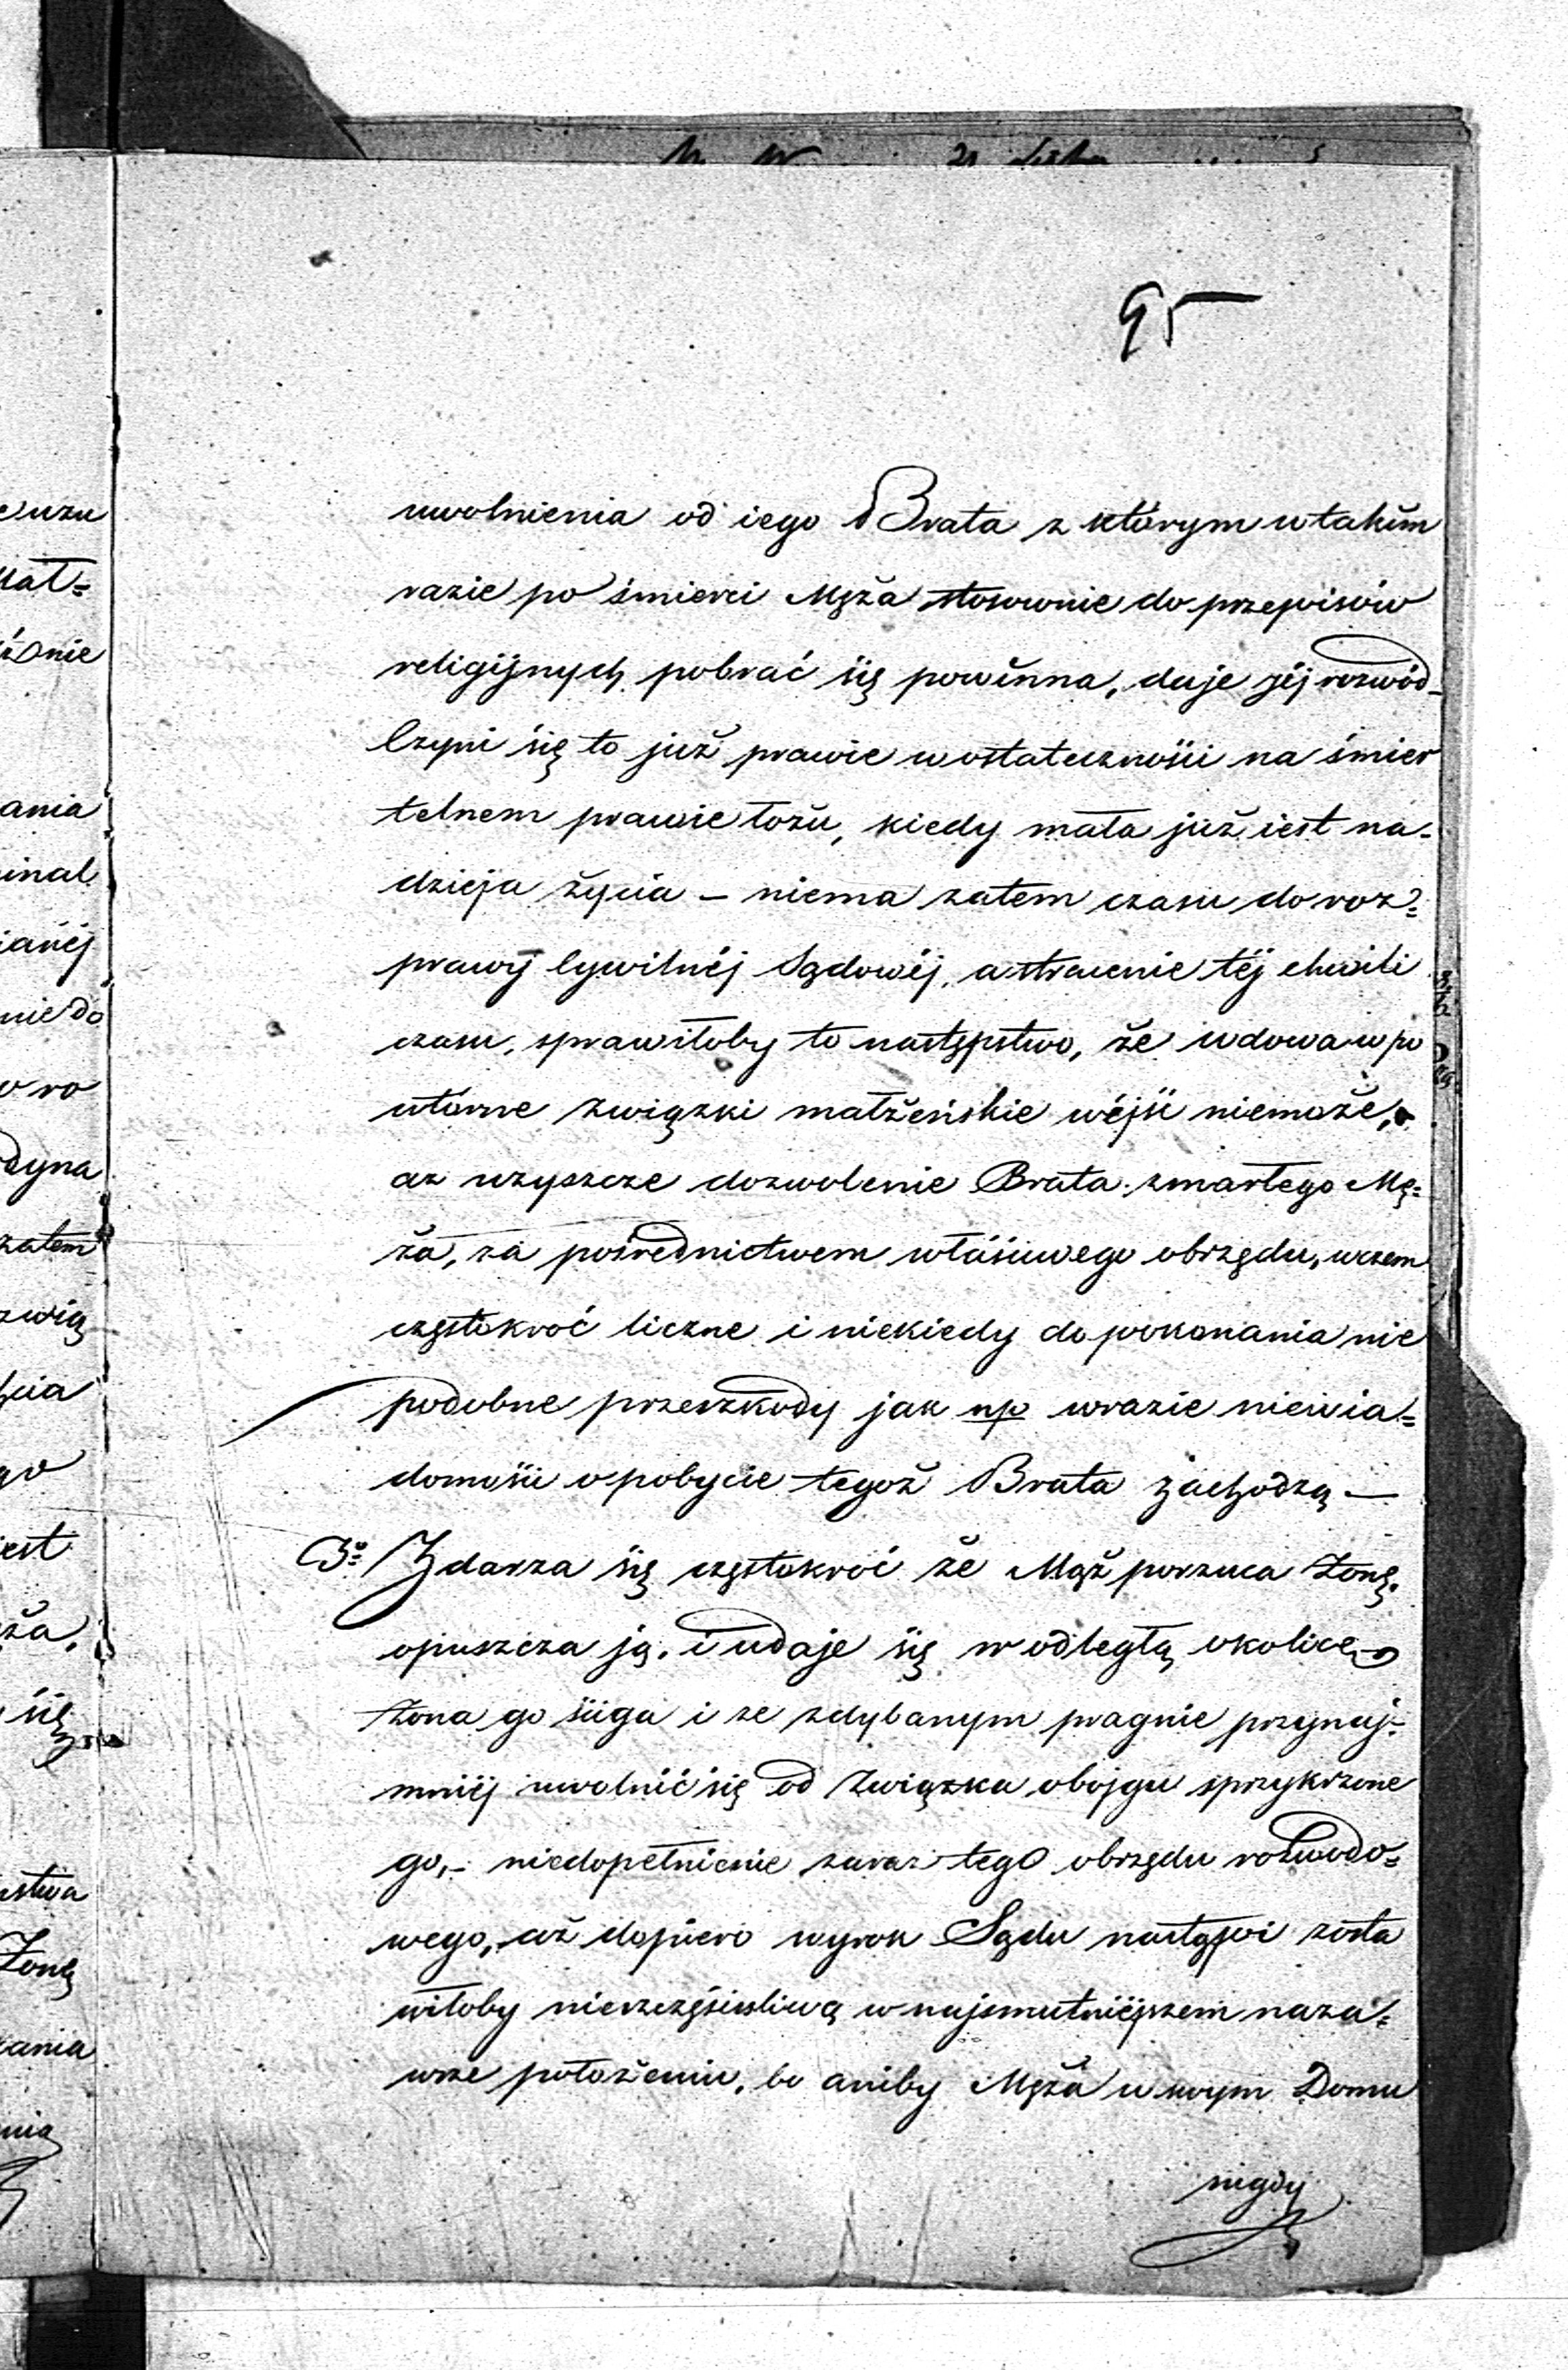 95
uwolnienia od iego Brata z którym w takim
razie po śmierci Męża stosownie do przepisów
religijnych pobrać się powinna, daje jéj rozwód_
Czyni się to już prawie w ostateczności na śmier
telnem prawie łożu, kiedy mała już iest na-
dzieja życia – niema zatem czasu do roz=
prawy Cywilnéj Sądowéj, a stracenie téj chwili
czasu, sprawiłoby to następstwo, że wdowa w po
wtórne związki małżeńskie wéjść niemoże,
aż uzyszcze dozwolenie Brata zmarłego Mę=
ża, za pośrednictwem właściwego obrzędu, w czem
częstokroć liczne i niekiedy do pokonania nie
podobne przeszkody jak np w razie niewia=
domości o pobycie tegoż Brata zachodzą —
3o Zdarza się częstokroć że Mąż porzuca żonę,
opuszcza ją, i udaje się w odległą okolicę
Żona go ściga i ze zdybanym pragnie przynaj-
mniéj uwolnić się od związku obojgu sprzykrzone
go,- niedopełnienie zaraz tego obrzędu rozwodo=
wego, aż dopiero wyrok Sądu nastąpi zosta
wiłoby nieszczęśliwą w najsmutniéjszem naza=
wsze położeniu, bo aniby Męża w swym Domu
nigdy
euzu
żnie
ania
inal
ianéj
nie do
dyna
zatem
związ
go
iest
ża,
się
stwa
Żonę
ania